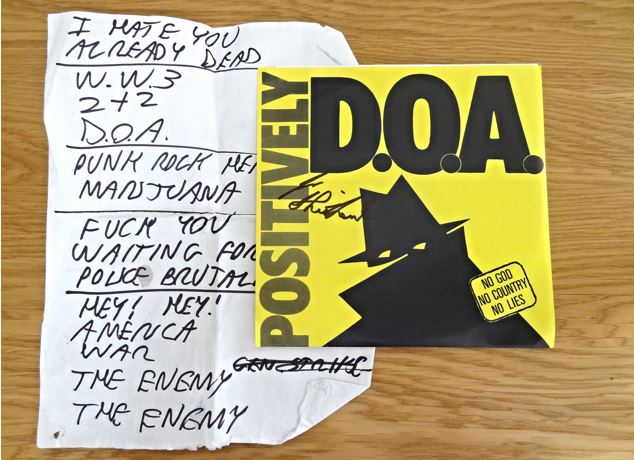 I HATE YOU
ALREADY DEAD
W.W.3
2+2
D.O.A.
PUNK ROCK HE
MARIJUANA
FUCK YOU
WAITING FOR
POLICE BRUTAL
HEY! HEY!
AMERICA
WAR
THE ENEMY
GEN STRIKE
THE ENEMY
POSITIVELY
D.O.A.
NO GOD
NO COUNTRY
NO LIES